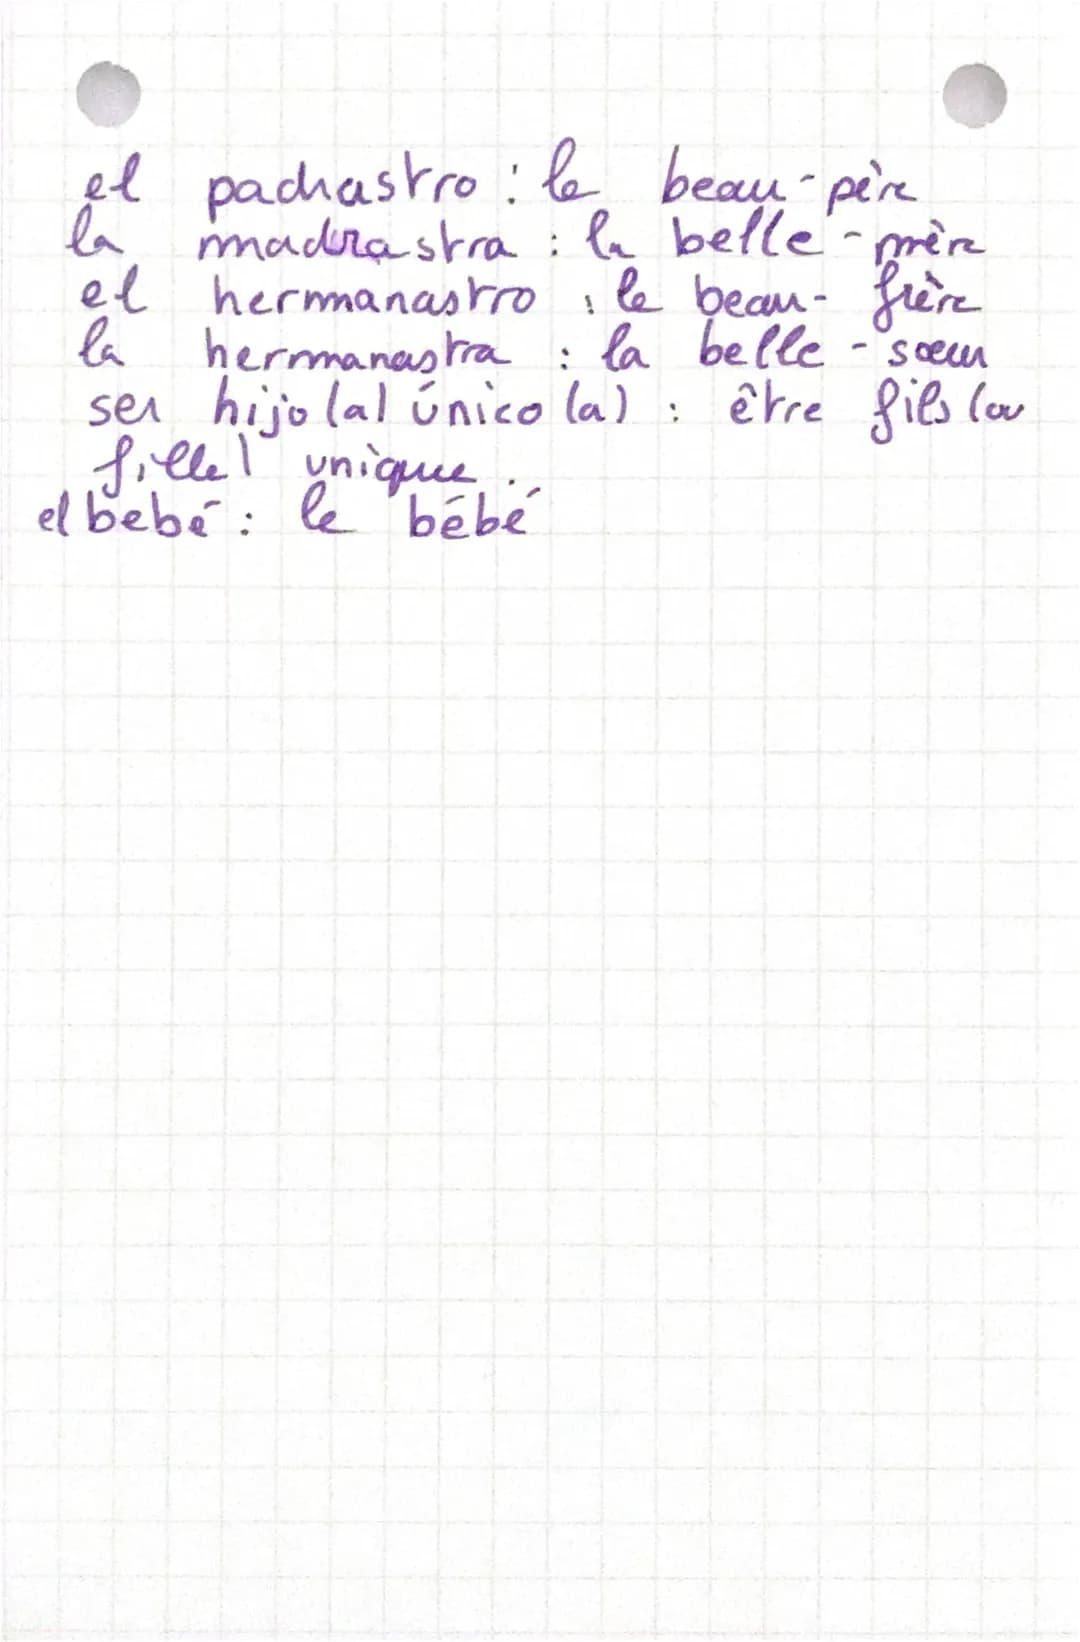 el padrastro : le beau-père
la madrastra : la belle-mère
el hermanastro : le beau-frère
la hermanastra : la belle-sœur
ser hijo (a) único (a) : être fils (ou
fille) unique.
el bebé : le bébé